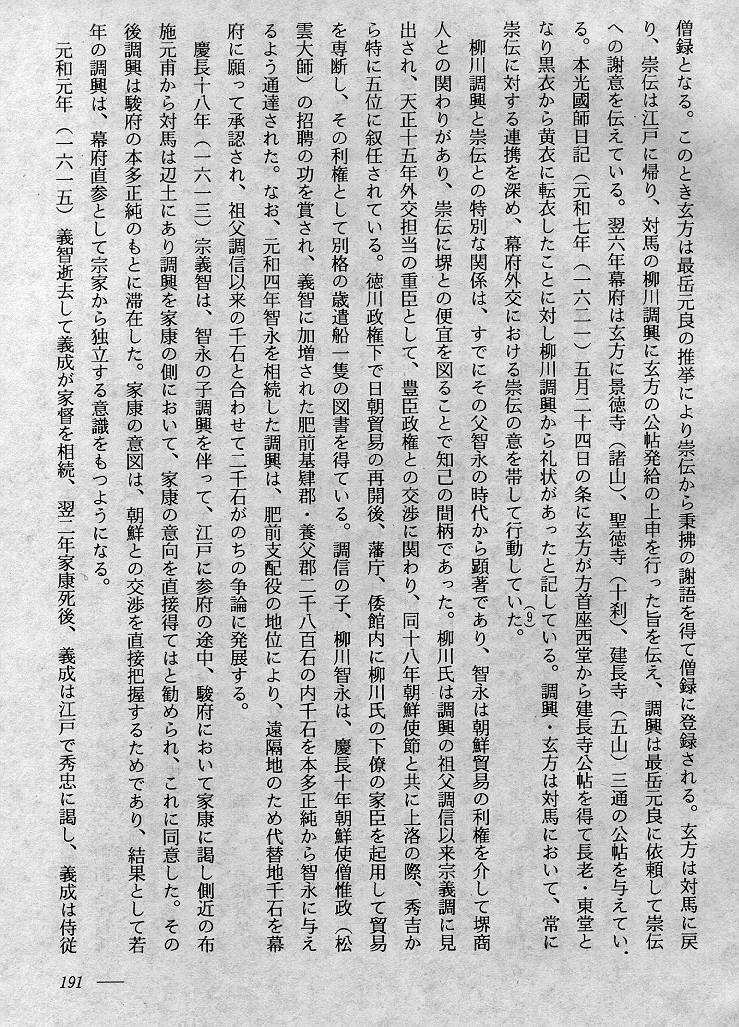 僧録となる。このとき玄方は最岳元良の推挙により崇伝から秉拂の謝語を得て僧録に登録される。玄方は対馬に戻
り、崇伝は江戸に帰り、対馬の柳川調興に玄方の公帖発給の上申を行った旨を伝え、調興は最岳元良に依頼して崇伝
への謝意を伝えている。翌六年幕府は玄方に景徳寺（諸山）、聖徳寺（十刹）、建長寺（五山）三通の公帖を与えてい
る。本光國師日記（元和七年（一六二一）五月二十四日の条に玄方が方首座西堂から建長寺公帖を得て長老・東堂と
なり黒衣から黄衣に転衣したことに対し柳川調興から礼状があったと記している。調興・玄方は対馬において、常に
崇伝に対する連携を深め、幕府外交における崇伝の意を帯して行動していた。（9）
柳川調興と崇伝との特別な関係は、すでにその父智永の時代から顕著であり、智永は朝鮮貿易の利権を介して堺商
人との関わりがあり、崇伝に堺との便宜を図ることで知己の間柄であった。柳川氏は調興の祖父調信以来宗義調に見
出され、天正十五年外交担当の重臣として、豊臣政権との交渉に関わり、同十八年朝鮮使節と共に上洛の際、秀吉か
ら特に五位に叙任されている。徳川政権下で日朝貿易の再開後、藩庁、倭館内に柳川氏の下僚の家臣を起用して貿易
を専断し、その利権として別格の歳遣船一隻の図書を得ている。調信の子、柳川智永は、慶長十年朝鮮使僧惟政（松
雲大師）の招聘の功を賞され、義智に加増された肥前基肄郡・養父郡二千八百石の内千石を本多正純から智永に与え
るよう通達された。なお、元和四年智永を相続した調興は、肥前支配役の地位により、遠隔地のため代替地千石を幕
府に願って承認され、祖父調信以来の千石と合わせて二千石がのちの争論に発展する。
慶長十八年（一六一三）宗義智は、智永の子調興を伴って、江戸に参府の途中、駿府において家康に謁し側近の布
施元甫から対馬は辺土にあり調興を家康の側において、家康の意向を直接得てはと勧められ、これに同意した。その
後調興は駿府の本多正純のもとに滞在した。家康の意図は、朝鮮との交渉を直接把握するためであり、結果として若
年の調興は、幕府直参として宗家から独立する意識をもつようになる。
元和元年（一六一五）義智逝去して義成が家督を相続、翌二年家康死後、義成は江戸で秀忠に謁し、義成は侍従
191 —